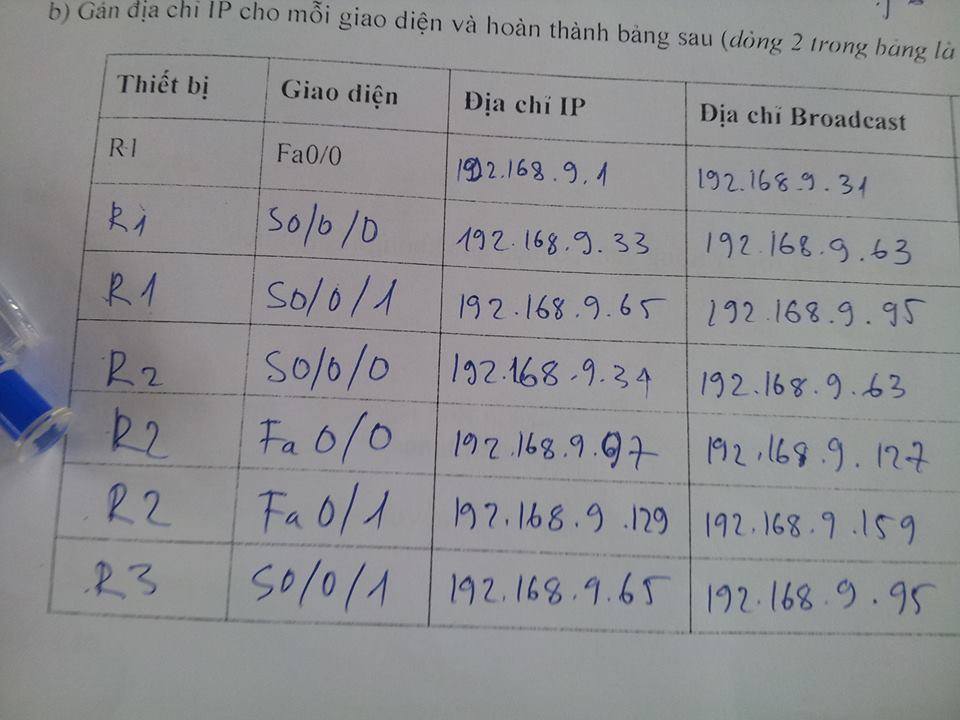 b) Gán địa chỉ IP cho mỗi giao diện và hoàn thành bảng sau (dòng 2 trong bảng là
Thiết bị Giao diện Địa chỉ IP Địa chỉ Broadcast
R1 Fa0/0 192.168.9.1 192.168.9.31
R1 S0/0/0 192.168.9.33 192.168.9.63
R1 S0/0/1 192.168.9.65 192.168.9.95
R2 S0/0/0 192.168.9.34 192.168.9.63
R2 Fa0/0 192.168.9.97 192.168.9.127
R2 Fa0/1 192.168.9.129 192.168.9.159
R3 S0/0/1 192.168.9.65 192.168.9.95